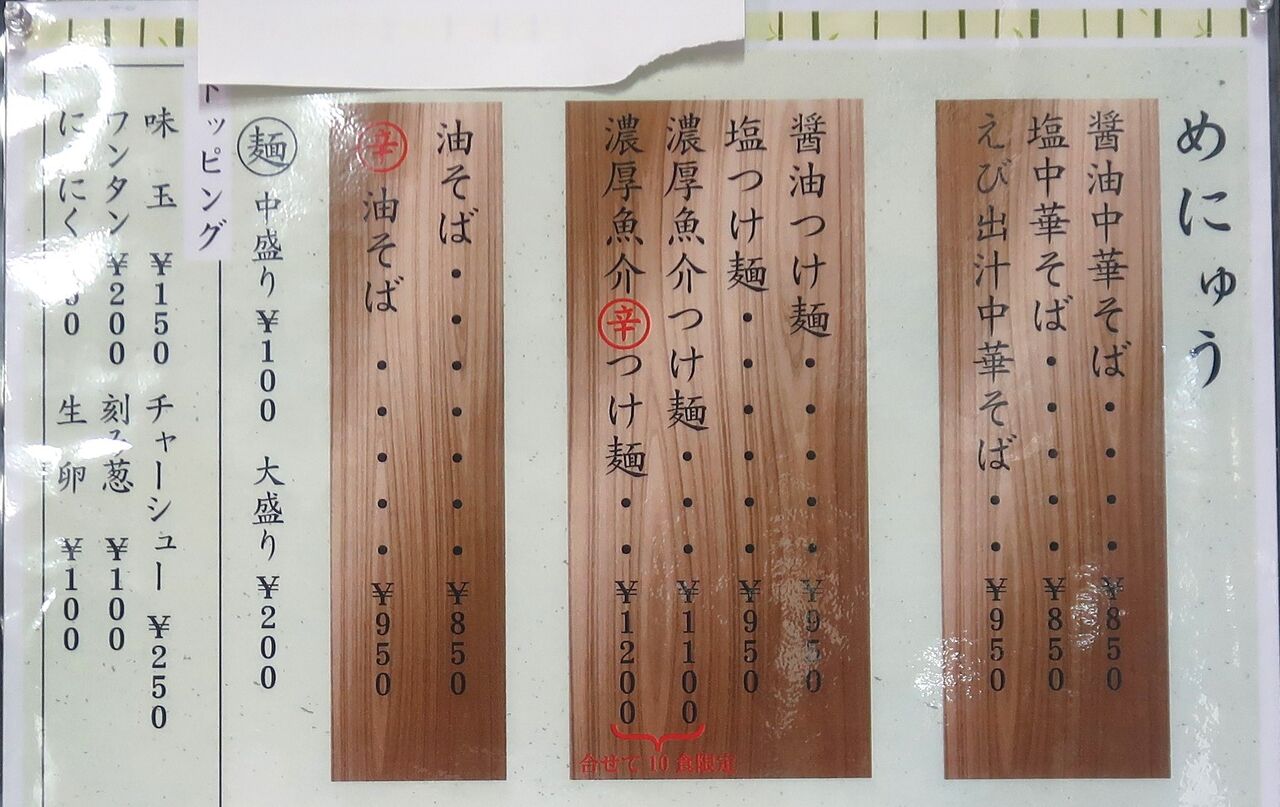 めにゅう
醤油中華そば・・・・¥850
塩中華そば・・・・・¥850
えび出汁中華そば・・¥950
醤油つけ麺・・・・・¥950
塩つけ麺・・・・・・¥950
濃厚魚介つけ麺・・・¥1100
濃厚魚介辛つけ麺・・¥1200
合せて10食限定
油そば・・・・・・・¥850
辛油そば・・・・・¥950
麺 中盛り ¥100 大盛り ¥200
トッピング
味玉 ¥150 チャーシュー ¥250
ワンタン ¥200 刻み葱 ¥100
にんにく 生卵 ¥100